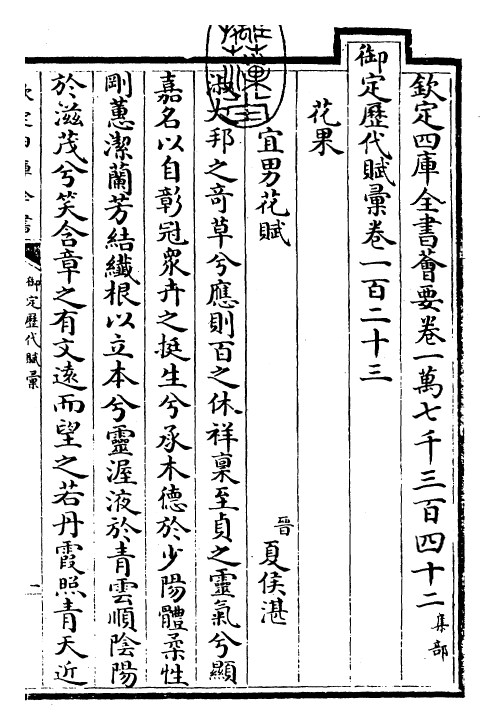 欽定四庫全書薈要卷一萬七千三百四十二 集部
御定歷代賦彙卷一百二十三
花果
宜男花賦 晉 夏侯湛
淑大邦之竒草兮應則百之休祥稟至貞之靈氣兮顯
嘉名以自彰冠衆卉之挺生兮承木德於少陽體柔性
剛蕙潔蘭芳結纖根以立本兮靈渥液於青雲順陰陽
於滋茂兮笑含章之有文遠而望之若丹霞照青天近
欽定四庫全書
御定歷代賦彙
一